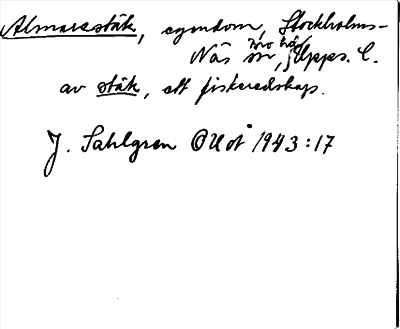 Almarestäk, egendom, Stockholms-
Näs sn, Bro hd, Upps. l.
av stäk, ett fiskeredskap.
J. Sahlgren OUoÅ 1943:17